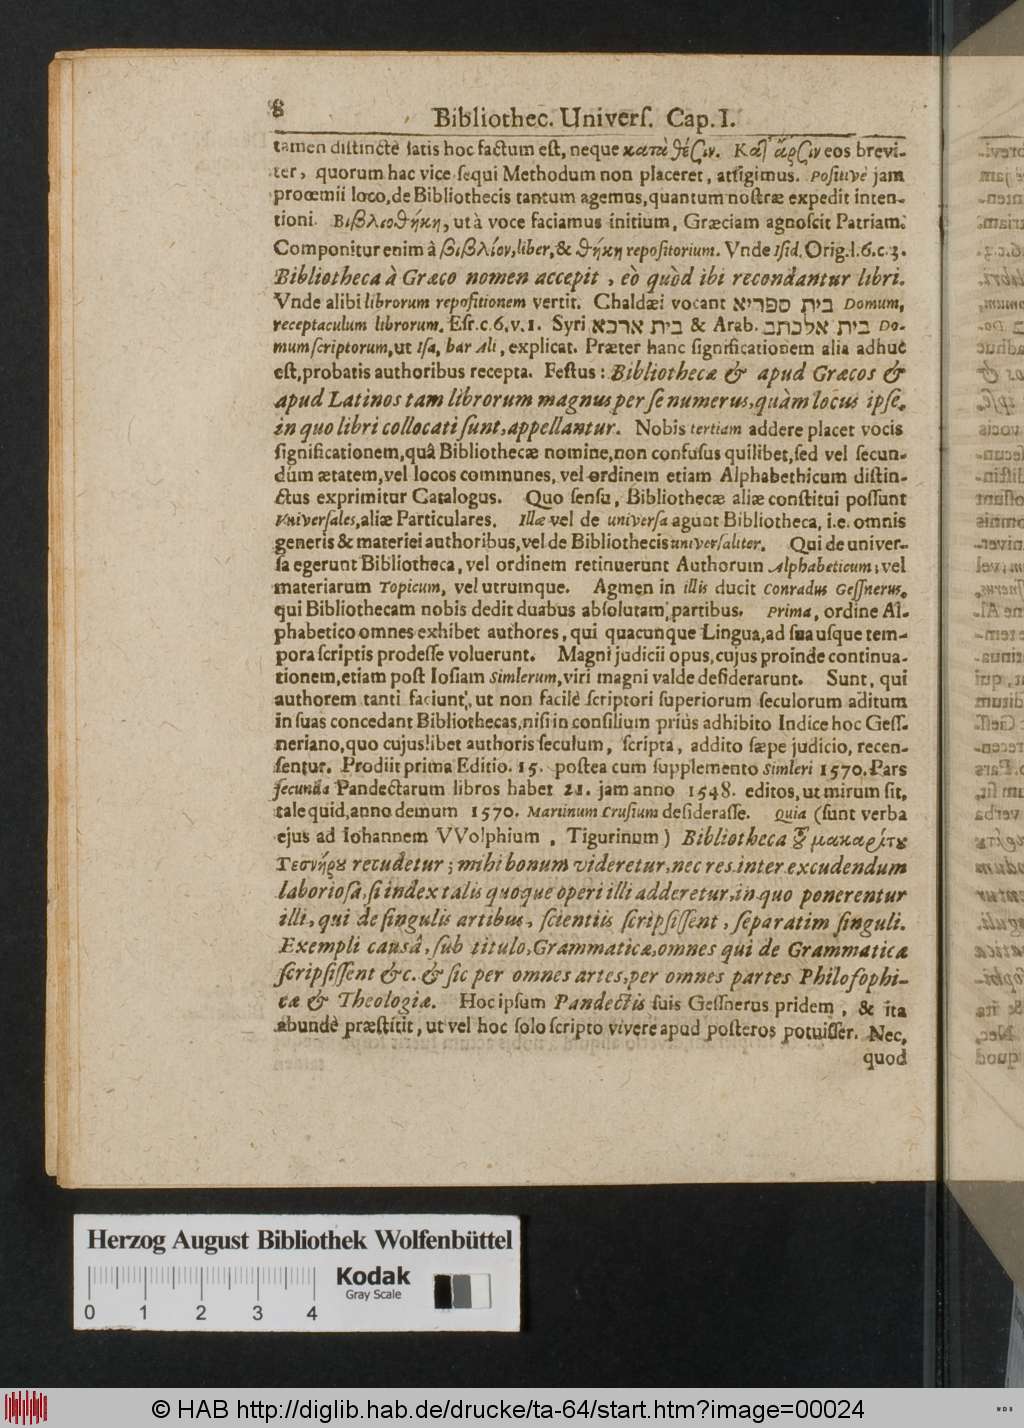 8
Bibliothec. Univerſ. Cap. I.
tamen diſtinctè ſatis hoc factum eſt, neque κατὰ θέσιν. Κατ' ἄρσιν eos brevi-
ter, quorum hac vice ſequi Methodum non placeret, attigimus. Poſitivè jam
proœmii loco, de Bibliothecis tantum agemus, quantum noſtræ expedit inten-
tioni. Βιβλιοθήκη, ut à voce faciamus initium, Græciam agnoſcit Patriam.
Componitur enim à βιβλίον, liber, & θήκη repoſitorium. Vnde Iſid. Orig. l. 6. c. 3.
Bibliotheca à Græco nomen accepit, eò quòd ibi recondantur libri.
Vnde alibi librorum repoſitionem vertit. Chaldæi vocant בית ספריא Domum,
receptaculum librorum. Eſr. c. 6. v. 1. Syri בית ארכא & Arab. בית אלכתב Do-
mum ſcriptorum, ut Iſa, bar Ali, explicat. Præter hanc ſignificationem alia adhuc
eſt, probatis authoribus recepta. Feſtus: Bibliothecæ & apud Græcos &
apud Latinos tam librorum magnus per ſe numerus, quàm locus ipſe,
in quo libri collocati ſunt, appellantur. Nobis tertiam addere placet vocis
ſignificationem, quâ Bibliothecæ nomine, non confuſus quilibet, ſed vel ſecun-
dùm ætatem, vel locos communes, vel ordinem etiam Alphabethicum diſtin-
ctus exprimitur Catalogus. Quo ſenſu, Bibliothecæ aliæ conſtitui poſſunt
Vniverſales, aliæ Particulares. Illæ vel de univerſa agunt Bibliotheca, i.e. omnis
generis & materiei authoribus, vel de Bibliothecis univerſaliter. Qui de univer-
ſa egerunt Bibliotheca, vel ordinem retinuerunt Authorum Alphabeticum; vel
materiarum Topicum, vel utrumque. Agmen in illis ducit Conradus Geſſnerus,
qui Bibliothecam nobis dedit duabus abſolutam partibus. Prima, ordine Al-
phabetico omnes exhibet authores, qui quacunque Lingua, ad ſua uſque tem-
pora ſcriptis prodeſſe voluerunt. Magni judicii opus, cujus proinde continua-
tionem, etiam poſt Ioſiam Simlerum, viri magni valde deſiderarunt. Sunt, qui
authorem tanti faciunt, ut non facilè ſcriptori ſuperiorum ſeculorum aditum
in ſuas concedant Bibliothecas, niſi in conſilium priùs adhibito Indice hoc Geſſ-
neriano, quo cujuslibet authoris ſeculum, ſcripta, addito ſæpe judicio, recen-
ſentur. Prodiit prima Editio. 15. poſtea cum ſupplemento Simleri 1570. Pars
ſecunda Pandectarum libros habet 21. jam anno 1548. editos, ut mirum ſit,
tale quid, anno demum 1570. Martinum Cruſium deſideraſſe. Quia (ſunt verba
ejus ad Iohannem VVolphium, Tigurinum) Bibliotheca τοῦ μακαρίτου
Γεσνήρου recudetur; mihi bonum videretur, nec res inter excudendum
laborioſa, ſi index talis quoque operi illi adderetur, in quo ponerentur
illi, qui de ſingulis artibus, ſcientiis ſcripſiſſent, ſeparatim ſinguli.
Exempli causâ, ſub titulo, Grammaticæ, omnes qui de Grammatica
ſcripſiſſent &c. & ſic per omnes artes, per omnes partes Philoſophi-
cæ & Theologiæ. Hoc ipſum Pandectis ſuis Geſſnerus pridem, & ita
abundè præſtitit, ut vel hoc ſolo ſcripto vivere apud poſteros potuiſſet. Nec,
quod
Herzog August Bibliothek Wolfenbüttel
0 1 2 3 4
Kodak
Gray Scale
© HAB http://diglib.hab.de/drucke/ta-64/start.htm?image=00024